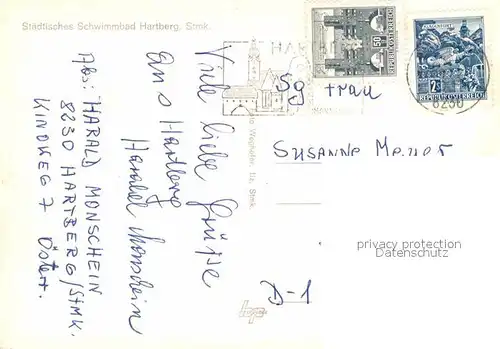 Städtisches Schwimmbad Hartberg, Stmk.
Abs: HARALD MONSCHEIN
8230 HARTBERG/STMK.
KINDWEG 7 Österr.
Viele liebe Grüsse
aus Hartberg
Harald Monschein
Sg Frau
SUSANNE
D-1
KLAGENFURT
REPUBLIK ÖSTERREICH
8230
privacy protection
Datenschutz